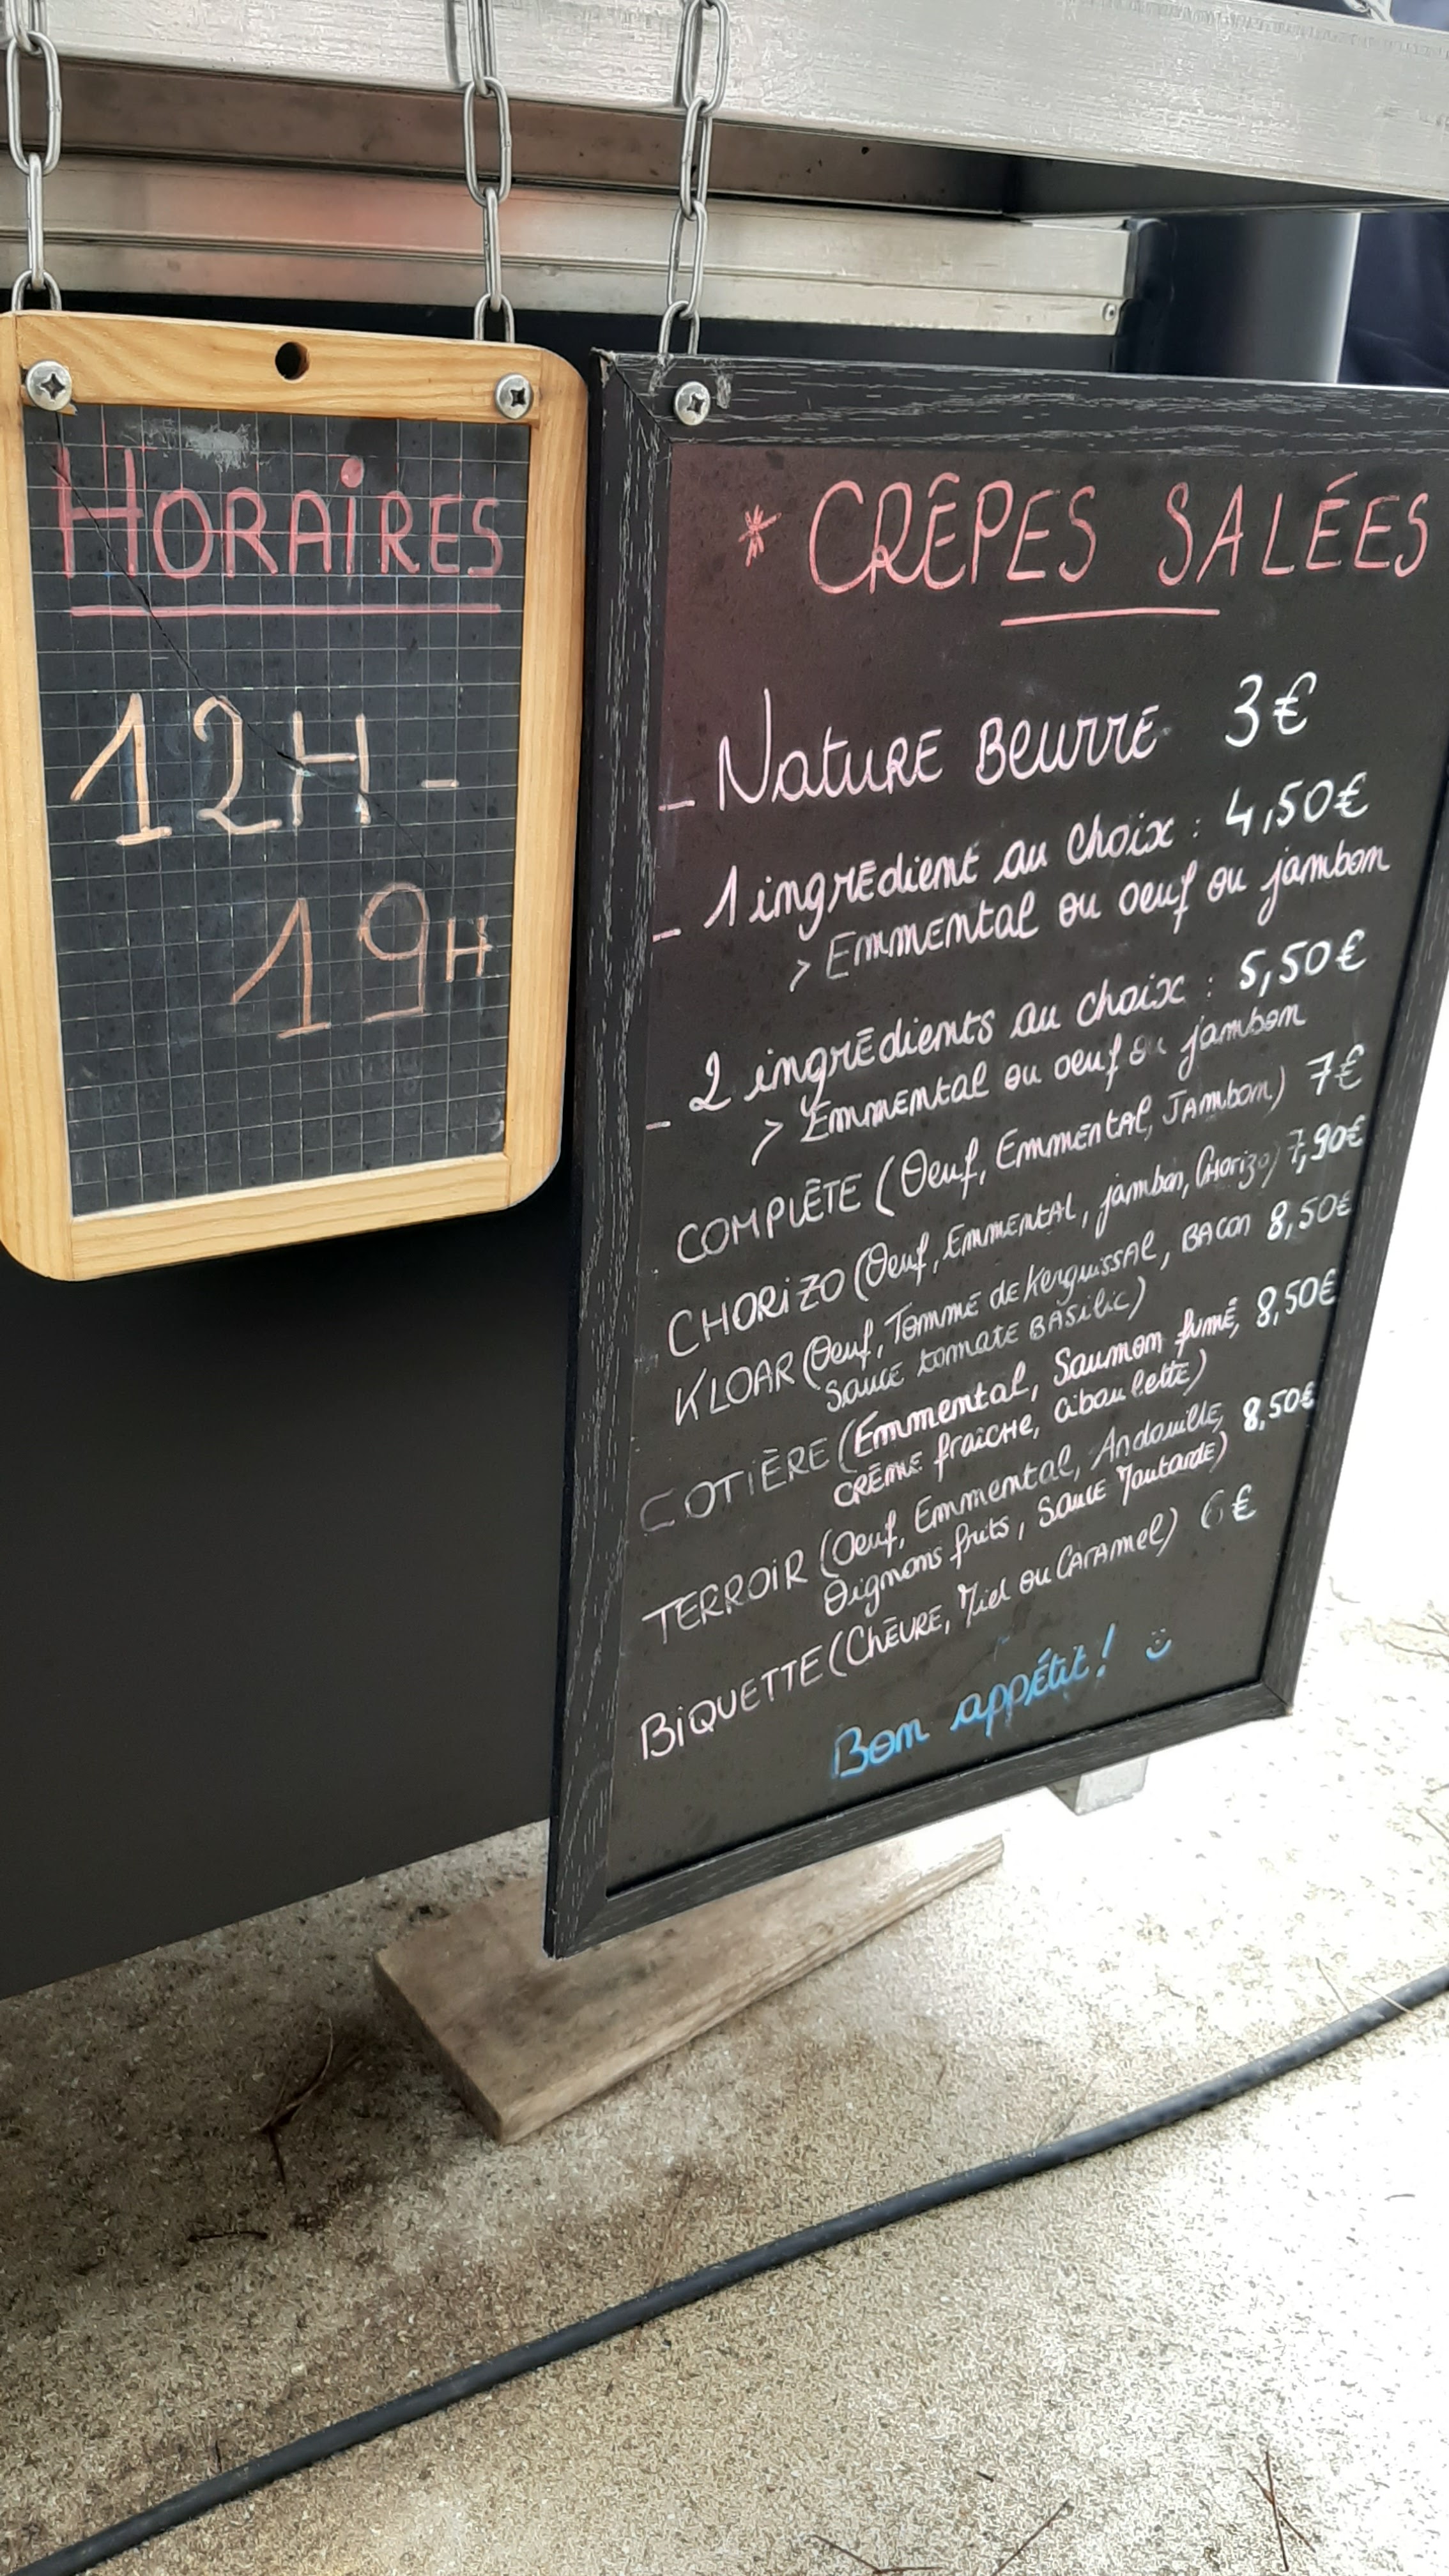 HORAIRES
12H -
19H
* CRÊPES SALÉES
- Nature Beurre 3€
- 1 ingrédient au choix : 4,50€
> Emmental ou oeuf ou jambon
- 2 ingrédients au choix : 5,50€
> Emmental ou oeuf ou jambon
COMPLÈTE (Oeuf, Emmental, Jambon) 7€
CHORIZO (Oeuf, Emmental, jambon, Chorizo) 7,90€
KLOAR (Oeuf, Tomme de Kerguissal, BACON 8,50€
Sauce tomate BASiLic)
COTIÈRE (Emmental, Saumon fumé, 8,50€
CRÈME fraîche, ciboulette)
TERROIR (Oeuf, Emmental, Andouille, 8,50€
Oignons frits, Sauce Moutarde)
BiQUETTE (Chèvre, Miel ou Caramel) 6€
Bon appétit!